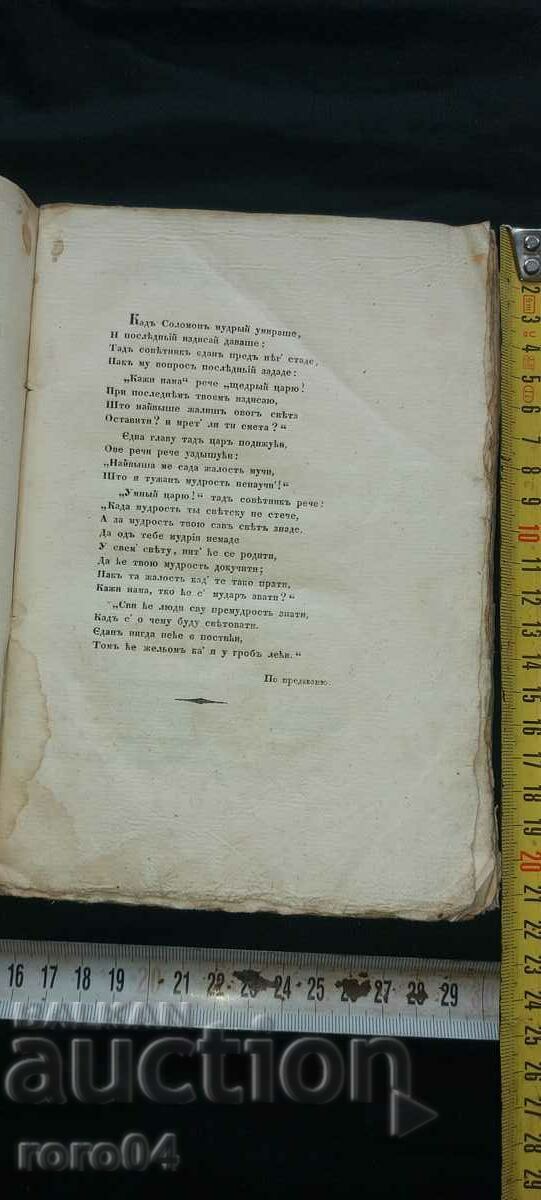 Кадъ Соломонъ мудрый умираше,
И послѣдный издисай даваше:
Тадъ совѣтникъ єданъ предъ нѣг' стаде,
Пакъ му вопросъ послѣдный зададе:
„Кажи нама“ рече „щедрый царю!
При последнѣмъ твоемъ издисаю,
Што найвыше жалишъ овогъ свѣта
Оставити? и мрет' ли ти смета?“
Єдва главу тадъ царъ подижући,
Ове речи рече уздышући:
„Найвыша ме сада жалость мучи,
Што я тужанъ мудрость ненаучи'!“
„Умный царю!“ тадъ совѣтникъ рече:
„Када мудрость ты свѣтску не стече,
А за мудрость твою савъ свѣтъ знаде.
Да одъ тебе мудрів немаде
У свем' свѣту, нит' ће се родити,
Да ће твою мудрость докучити;
Пакъ та жалость кад' те тако прати,
Кажи нама, тко ће с' мударъ звати?“
„Сви ће люди сву премудрость знати,
Кадъ с' о чему буду свѣтовати.
Єданъ нигда неће є постићи,
Томъ ће жельомъ ка' я у гробъ лећи.“
По преданію.
2 3 4 5 6 7 8 9 10 11 12 13 14 15 16 17 18 19 20 21 22 23 24 25 26 27 28 29
16 17 18 19 20 21 22 23 24 25 26 27 28 29
BALKAN
auction
roro04